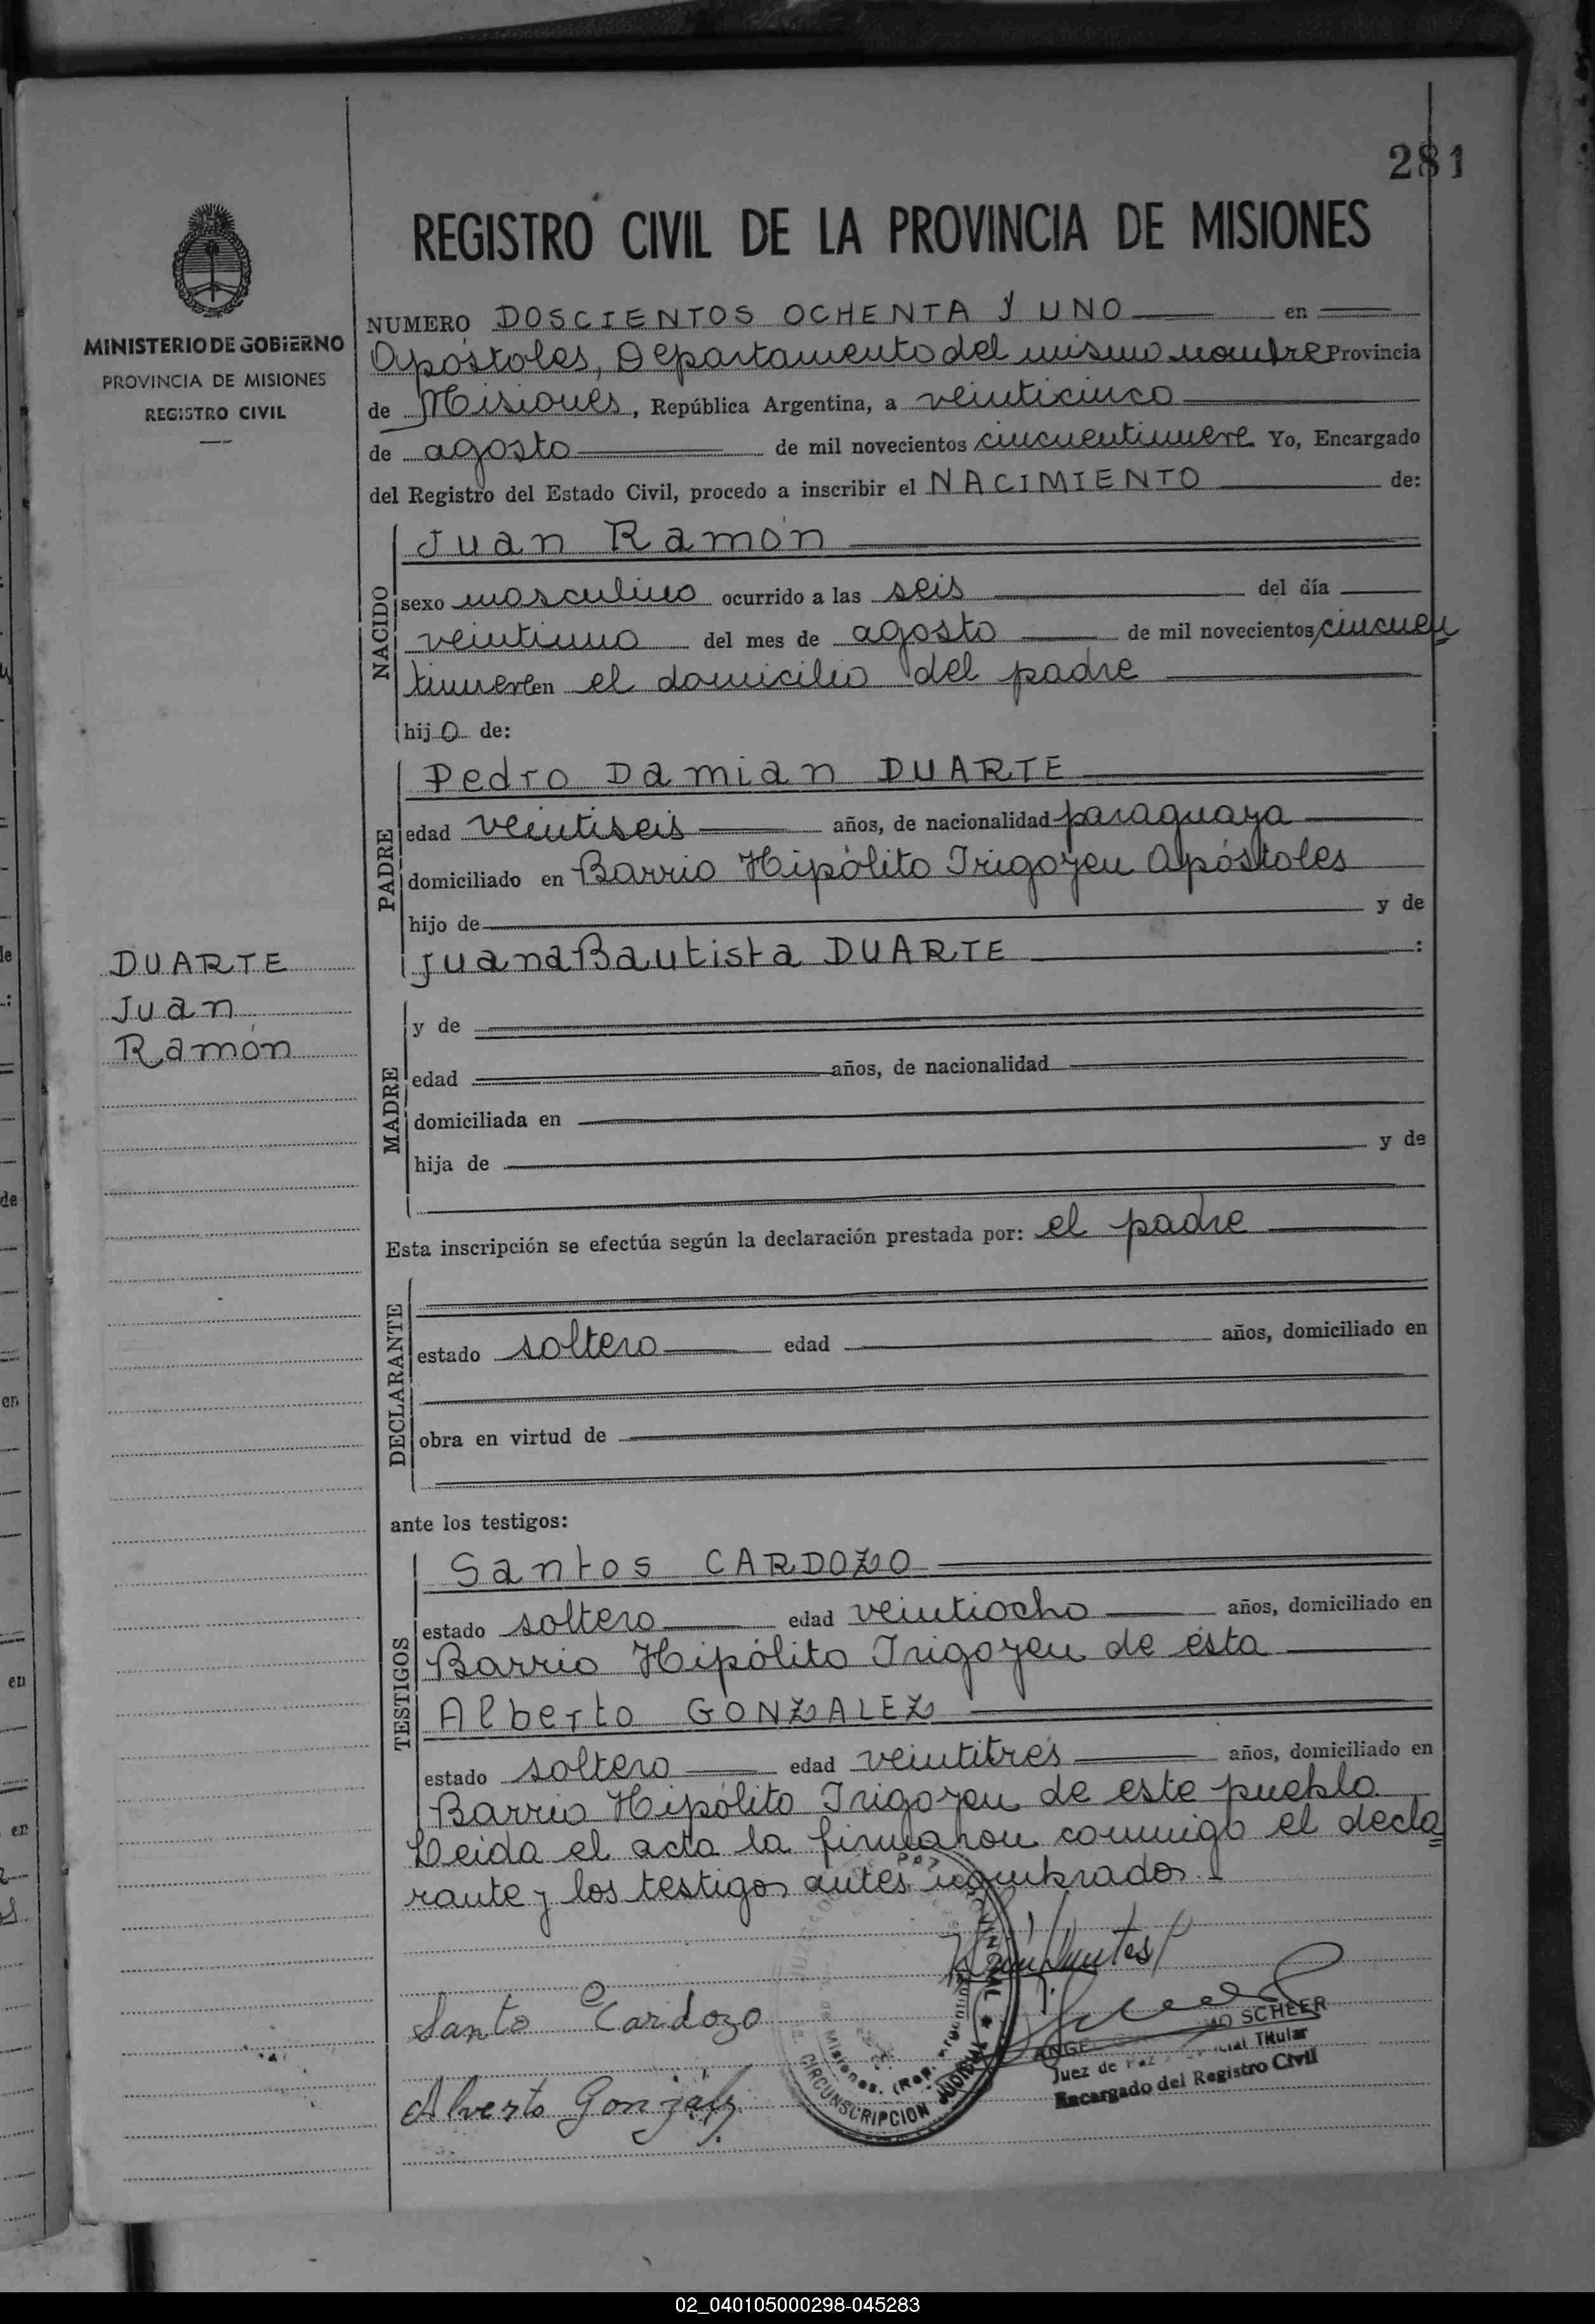 281
REGISTRO CIVIL DE LA PROVINCIA DE MISIONES
MINISTERIO DE GOBIERNO
PROVINCIA DE MISIONES
REGISTRO CIVIL
NUMERO DOSCIENTOS OCHENTA Y UNO en
Apóstoles, Departamento del mismo nombre Provincia
de Misiones, República Argentina, a veinticinco
de agosto de mil novecientos cincuentinueve Yo, Encargado
del Registro del Estado Civil, procedo a inscribir el NACIMIENTO de:
NACIDO
Juan Ramón
sexo masculino ocurrido a las seis del día
veintiuno del mes de agosto de mil novecientos cincuen
tinueve en el domicilio del padre
hijo de:
PADRE
Pedro Damian DUARTE
edad veintiseis años, de nacionalidad paraguaya
domiciliado en Barrio Hipólito Irigoyen Apóstoles
hijo de y de
Juana Bautista DUARTE :
DUARTE
Juan
Ramón
MADRE
y de
edad años, de nacionalidad
domiciliada en
hija de y de
Esta inscripción se efectúa según la declaración prestada por: el padre
DECLARANTE
estado soltero edad años, domiciliado en
obra en virtud de
ante los testigos:
TESTIGOS
Santos CARDOZO
estado soltero edad veintiocho años, domiciliado en
Barrio Hipólito Irigoyen de ésta
Alberto GONZALEZ
estado soltero edad veintitrés años, domiciliado en
Barrio Hipólito Irigoyen de este pueblo.
Leida el acta la firmaron conmigo el decla
rante y los testigos antes nombrados.
Santo Cardozo
Alverto Gonzalz
SCHEER
Juez de Paz Titular
Encargado del Registro Civil
CIRCUNSCRIPCION JUDICIAL
de Misiones. (Rep. Argentina)
02_040105000298-045283